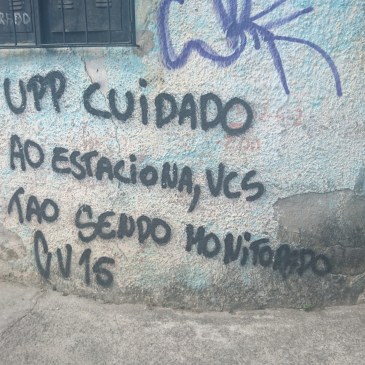 UPP CUIDADO
AO ESTACIONA, VCS
TAO SENDO MONITORADO
CV15